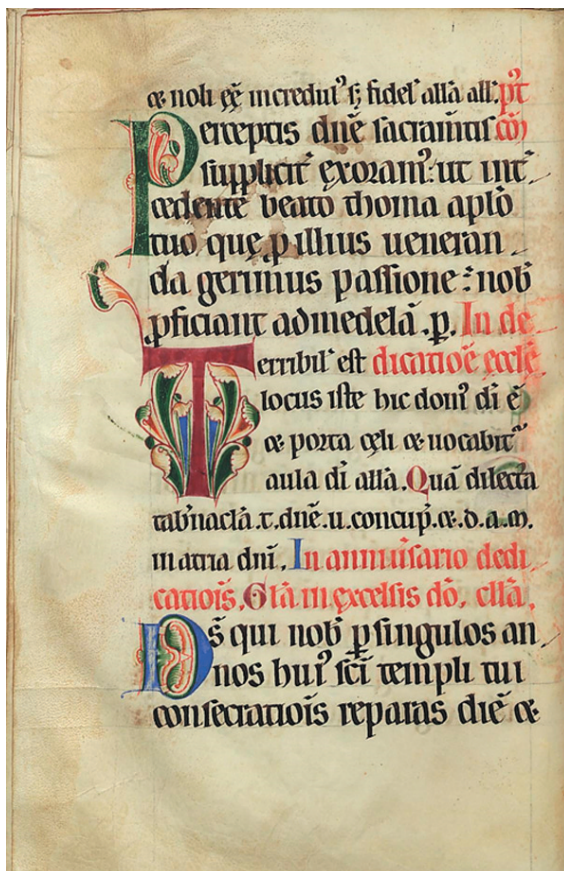 ⁊ noli eē incredul᷒ sꝫ fidel᷒ alla̅ all̅. p᷒t
Perceptis dn̅e sacram̅tis co̅
supplicit᷒ exoram᷒: ut int᷒
cedente beato thoma aplo̅
tuo que ꝑ illius ueneran
da gerimus passione: nob̅
ꝓficiant admedela̅. ꝑ. In de
Terribil᷒ est dicatio̅e eccle̅
locus iste hic dom᷒ di̅ e̅
⁊ porta celi ⁊ uocabit᷒
aula di̅ alla̅. Qua̅ dilecta
tab̅nacla̅. t. dn̅e. u. concup̅. ⁊. d. a. m.
in atria dn̅i. In anniu̅sario dedi
catio̅is. Gla̅ in excelsis do̅. all̅a.
Ds̅ qui nob̅ ꝑ singulos an
nos hui᷒ sc̅i templi tui
consecratio̅is reparas die̅ ⁊